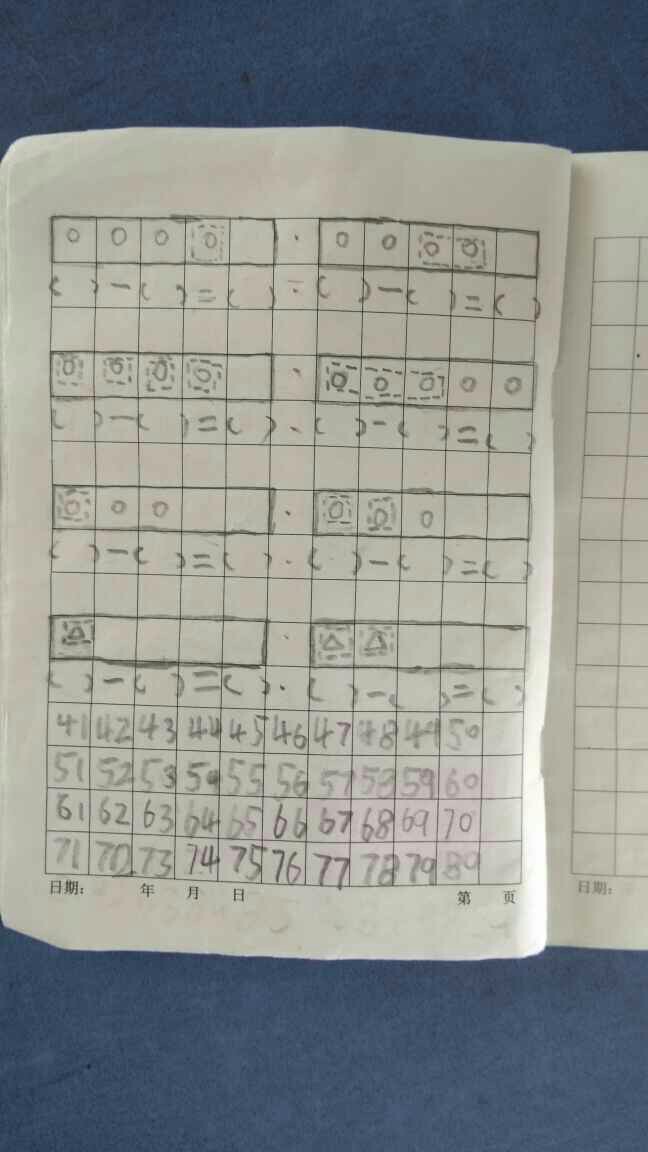 ○ ○ ○ ○ · ○ ○ ○ ○
( ) - ( ) = ( ) · ( ) - ( ) = ( )
○ ○ ○ ○ · ○ ○ ○ ○ ○
( ) - ( ) = ( ) · ( ) - ( ) = ( )
○ ○ ○ · ○ ○ ○
( ) - ( ) = ( ) · ( ) - ( ) = ( )
△ · △ △
( ) - ( ) = ( ) · ( ) - ( ) = ( )
41 42 43 44 45 46 47 48 49 50
51 52 53 54 55 56 57 58 59 60
61 62 63 64 65 66 67 68 69 70
71 72 73 74 75 76 77 78 79
日期: 年 月 日 第 页
日期: